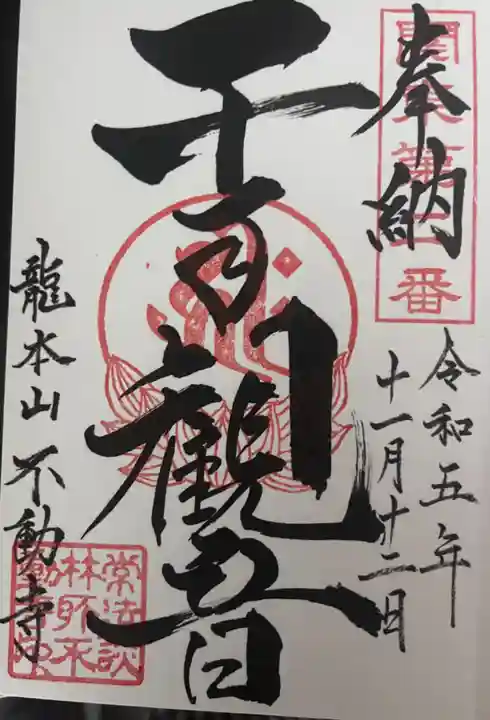 奉納
令和五年
十一月十二日
千手觀音
龍本山不動寺
常法談
林所不